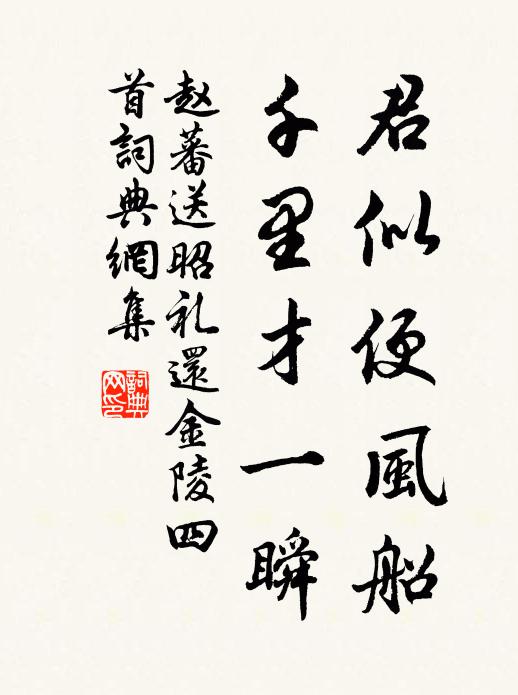 君似便風船
千里才一瞬
赵蕃送昭礼還金陵四
首詞典網集
詞典
网印